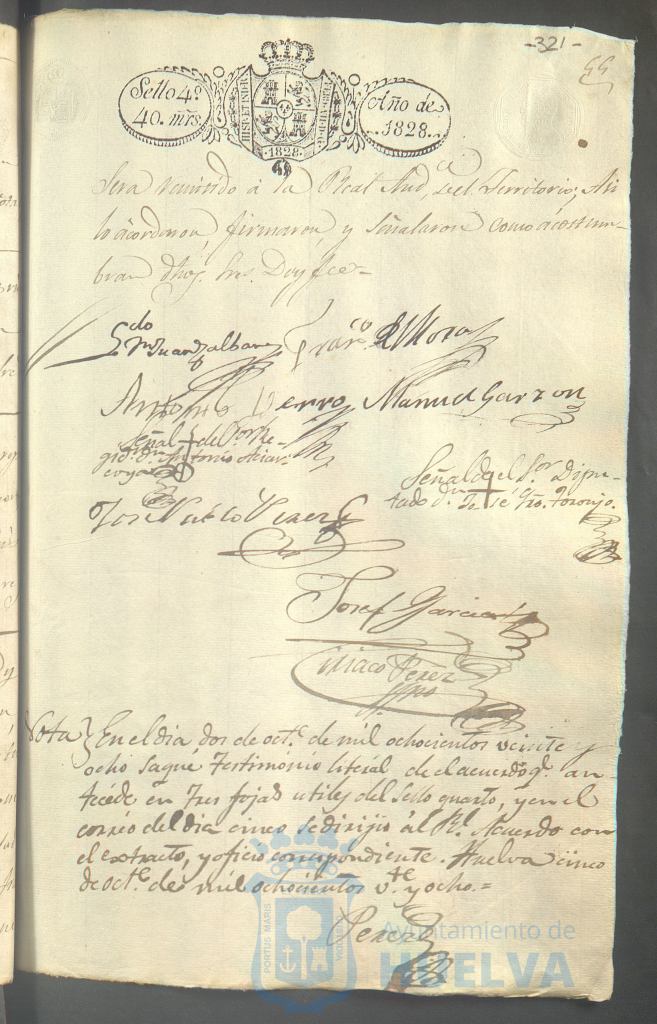 -321-
Sello 4º
40. mrs.
HISP. ET IND. R.
1828.
Año de
1828.
Sera remitido á la Real Aud.ca del Territorio; Asi
lo acordaron, firmaron, y señalaron como acostum-
bran dhos. Sres. Doy fee=
Manuel Garzon
Antonio Hierro
Señal + del Sor. Re-
gidor dn. Antonio
Señal del Sor. Dipu-
tado dn. + José Toronjo.
José Pablo Perez
Josef Garcia
Ciriaco Perez
Nota } En el dia dos de octe. de mil ochocientos veinte y
ocho saqué Testimonio literal de el acuerdo qe. an
tecede en tres fojas utiles del sello quarto, y en el
correo del dia cinco se dirijio al Rl. Acuerdo con
el extracto, y oficio correspondiente. Huelva cinco
de octe. de mil ochocientos vte. y ocho.=
Perez
PORTUS MARIS
CUSTODIA
Ayuntamiento de
HUELVA